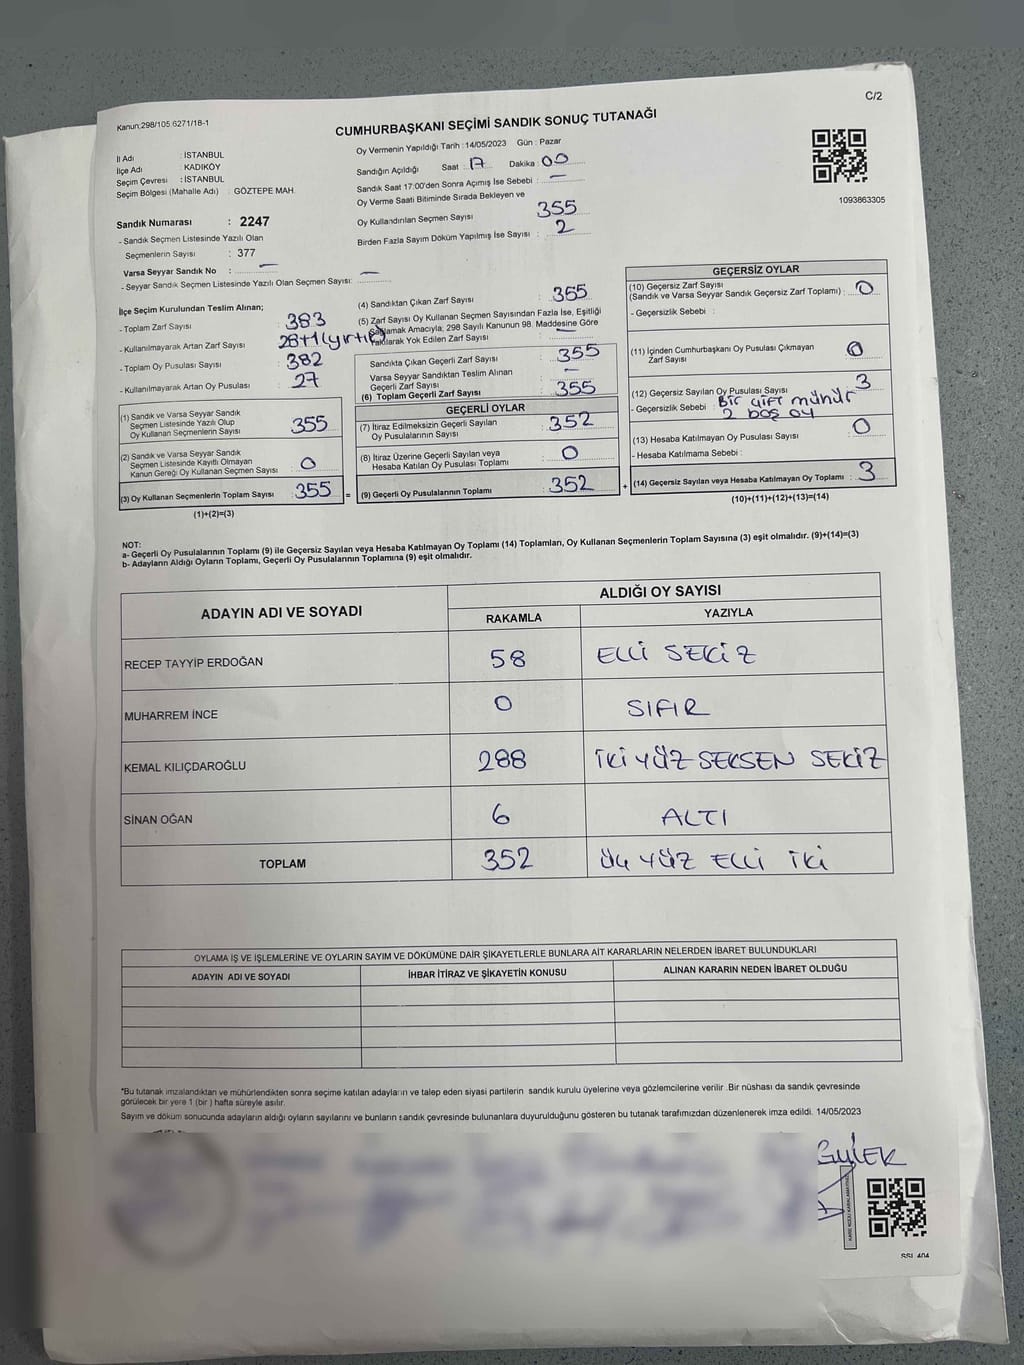 C/2
Kanun:298/105 6271/18-1
CUMHURBAŞKANI SEÇİMİ SANDIK SONUÇ TUTANAĞI
İl Adı : İSTANBUL
İlçe Adı : KADIKÖY
Seçim Çevresi : İSTANBUL
Seçim Bölgesi (Mahalle Adı) : GÖZTEPE MAH.
Sandık Numarası : 2247
- Sandık Seçmen Listesinde Yazılı Olan
Seçmenlerin Sayısı : 377
Varsa Seyyar Sandık No : —
- Seyyar Sandık Seçmen Listesinde Yazılı Olan Seçmen Sayısı: —
Oy Vermenin Yapıldığı Tarih :14/05/2023 Gün : Pazar
Sandığın Açıldığı Saat : 17 Dakika : 00
Sandık Saat 17:00'den Sonra Açımış İse Sebebi : —
Oy Verme Saati Bitiminde Sırada Bekleyen ve
Oy Kullandırılan Seçmen Sayısı 355
Birden Fazla Sayım Döküm Yapılmış İse Sayısı : 2
1093863305
İlçe Seçim Kurulundan Teslim Alınan;
- Toplam Zarf Sayısı : 383
- Kullanılmayarak Artan Zarf Sayısı 28+1(yırtık)
- Toplam Oy Pusulası Sayısı : 382
- Kullanılmayarak Artan Oy Pusulası : 27
(1) Sandık ve Varsa Seyyar Sandık
Seçmen Listesinde Yazılı Olup
Oy Kullanan Seçmenlerin Sayısı 355
(2) Sandık ve Varsa Seyyar Sandık
Seçmen Listesinde Kayıtlı Olmayan
Kanun Gereği Oy Kullanan Seçmen Sayısı : 0
(3) Oy Kullanan Seçmenlerin Toplam Sayısı : 355 =
(1)+(2)=(3)
(4) Sandıktan Çıkan Zarf Sayısı : 355
(5) Zarf Sayısı Oy Kullanan Seçmen Sayısından Fazla İse, Eşitliği
Sağlamak Amacıyla; 298 Sayılı Kanunun 98. Maddesine Göre
Yakılarak Yok Edilen Zarf Sayısı : —
Sandıkta Çıkan Geçerli Zarf Sayısı : 355
Varsa Seyyar Sandıktan Teslim Alınan
Geçerli Zarf Sayısı : —
(6) Toplam Geçerli Zarf Sayısı : 355
GEÇERLİ OYLAR
(7) İtiraz Edilmeksizin Geçerli Sayılan
Oy Pusulalarının Sayısı : 352
(8) İtiraz Üzerine Geçerli Sayılan veya
Hesaba Katılan Oy Pusulası Toplamı : 0
(9) Geçerli Oy Pusulalarının Toplamı : 352 +
GEÇERSİZ OYLAR
(10) Geçersiz Zarf Sayısı
(Sandık ve Varsa Seyyar Sandık Geçersiz Zarf Toplamı) : 0
- Geçersizlik Sebebi :
(11) İçinden Cumhurbaşkanı Oy Pusulası Çıkmayan
Zarf Sayısı : 0
(12) Geçersiz Sayılan Oy Pusulası Sayısı : 3
- Geçersizlik Sebebi : Bir çift mühür
2 boş oy
(13) Hesaba Katılmayan Oy Pusulası Sayısı : 0
- Hesaba Katılmama Sebebi :
(14) Geçersiz Sayılan veya Hesaba Katılmayan Oy Toplamı : 3
(10)+(11)+(12)+(13)=(14)
NOT:
a- Geçerli Oy Pusulalarının Toplamı (9) ile Geçersiz Sayılan veya Hesaba Katılmayan Oy Toplamı (14) Toplamları, Oy Kullanan Seçmenlerin Toplam Sayısına (3) eşit olmalıdır. (9)+(14)=(3)
b- Adayların Aldığı Oyların Toplamı, Geçerli Oy Pusulalarının Toplamına (9) eşit olmalıdır.
ADAYIN ADI VE SOYADI
ALDIĞI OY SAYISI
RAKAMLA YAZIYLA
RECEP TAYYİP ERDOĞAN 58 ELLİ SEKİZ
MUHARREM İNCE 0 SIFIR
KEMAL KILIÇDAROĞLU 288 İKİ YÜZ SEKSEN SEKİZ
SİNAN OĞAN 6 ALTI
TOPLAM 352 ÜÇ YÜZ ELLİ İKİ
OYLAMA İŞ VE İŞLEMLERİNE VE OYLARIN SAYIM VE DÖKÜMÜNE DAİR ŞİKAYETLERLE BUNLARA AİT KARARLARIN NELERDEN İBARET BULUNDUKLARI
ADAYIN ADI VE SOYADI İHBAR İTİRAZ VE ŞİKAYETİN KONUSU ALINAN KARARIN NEDEN İBARET OLDUĞU
*Bu tutanak imzalandıktan ve mühürlendikten sonra seçime katılan adayların ve talep eden siyasi partilerin sandık kurulu üyelerine veya gözlemcilerine verilir .Bir nüshası da sandık çevresinde
görülecek bir yere 1 (bir ) hafta süreyle asılır.
Sayım ve döküm sonucunda adayların aldığı oyların sayılarını ve bunların sandık çevresinde bulunanlara duyurulduğunu gösteren bu tutanak tarafımızdan düzenlenerek imza edildi. 14/05/2023